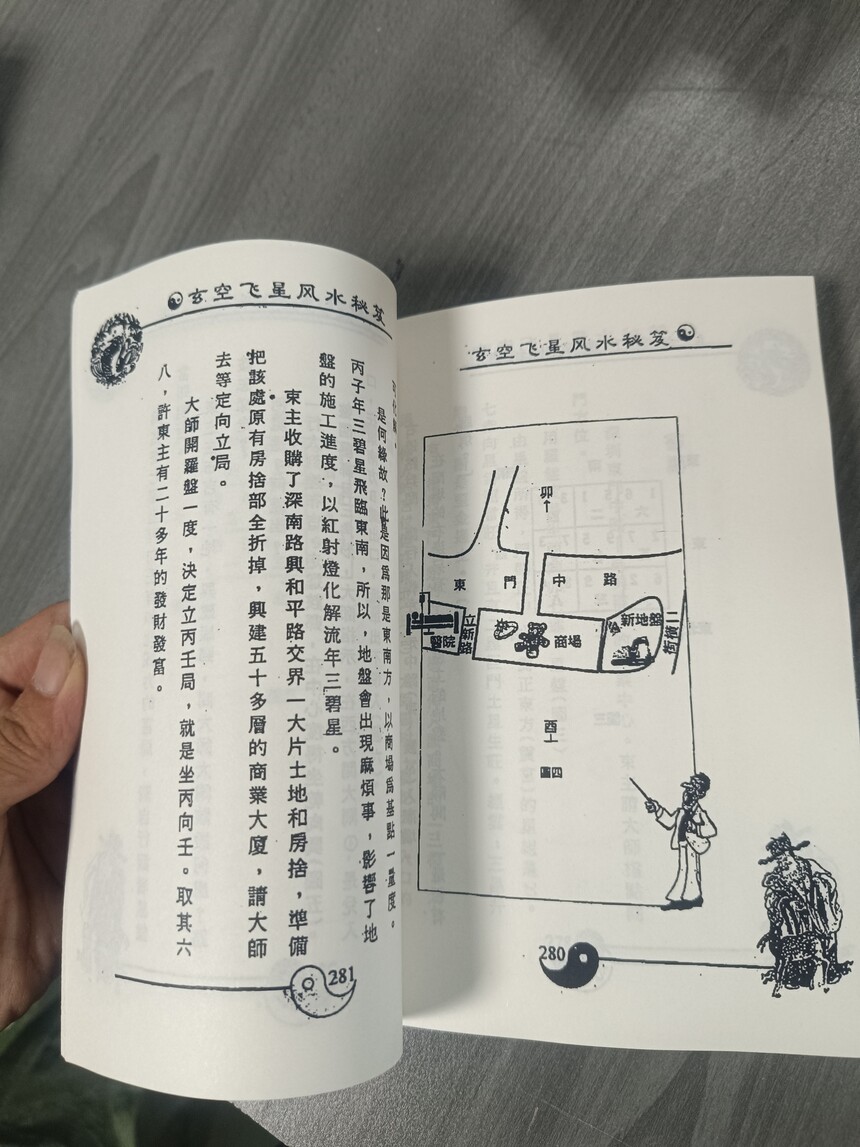 玄空飞星风水秘笈
卯
東門中路
醫院
立新路
商場
新地盤
二橫街
酉
圖四
280
玄空飞星风水秘笈
是何緣故？此是因爲那是東南方，以商場爲基點一量度。
丙子年三碧星飛臨東南，所以，地盤會出現麻煩事，影響了地
盤的施工進度，以紅射燈化解流年三碧星。
東主收購了深南路興和平路交界一大片土地和房捨，準備
把該處原有房捨部全折掉，興建五十多層的商業大廈，請大師
去等定向立局。
大師開羅盤一度，決定立丙壬局，就是坐丙向壬。取其六
八，許東主有二十多年的發財發富。
281